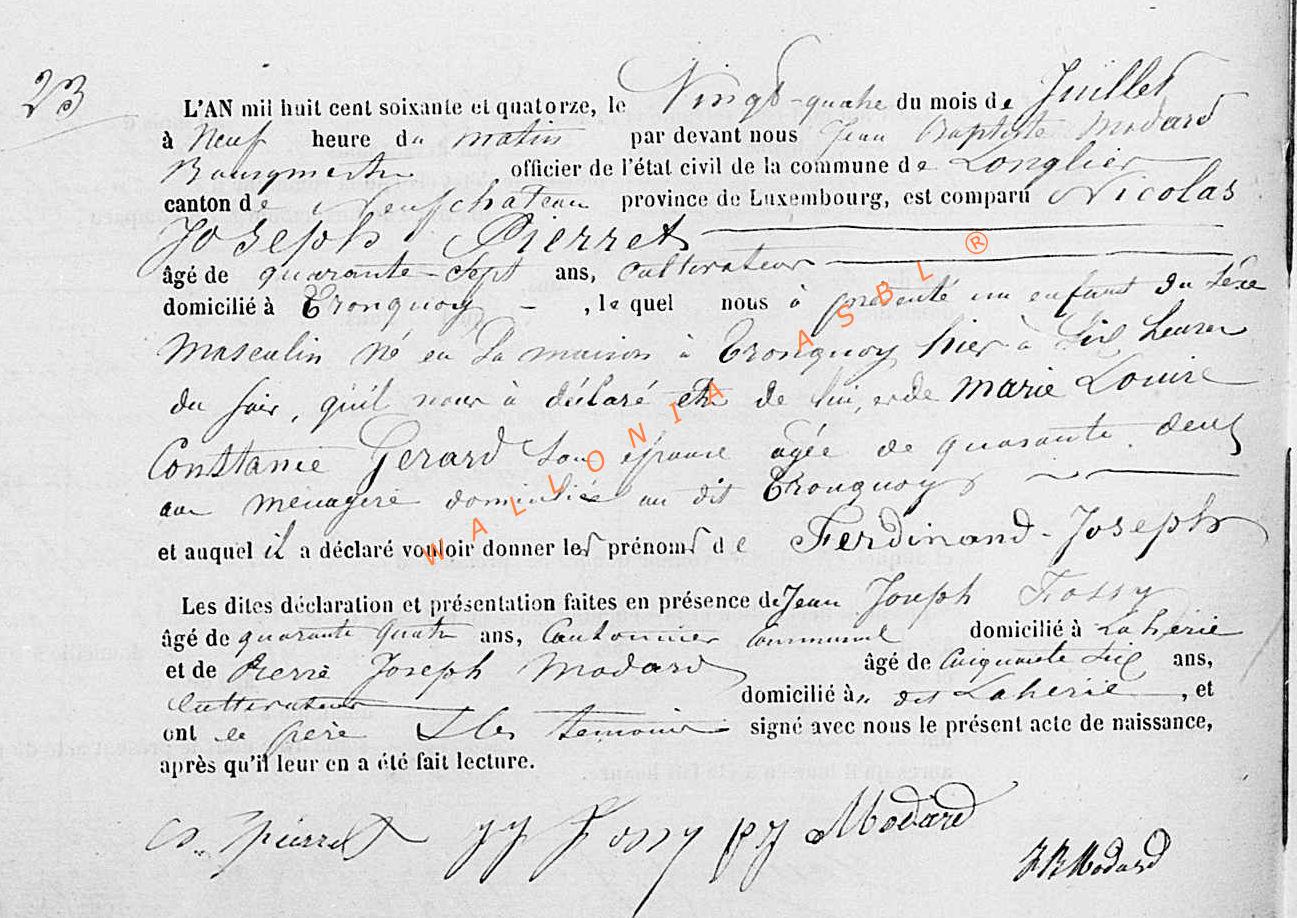 23
L'AN mil huit cent soixante et quatorze, le Vingt-quatre du mois de Juillet
à Neuf heure du matin par devant nous Jean Baptiste Modard
Bourgmestre officier de l'état civil de la commune de Longlier
canton de Neufchateau province de Luxembourg, est comparu Nicolas
Joseph Pierret
âgé de quarante-sept ans, cultivateur
domicilié à Tronquoy - , le quel nous à présenté un enfant du sexe
Masculin né en sa maison à Tronquoy hier à six heures
du soir, qu'il nous à déclaré être de lui, et de Marie Louise
Constance Gerard son épouse agée de quarante deux
ans ménagère domiciliée au dit Tronquoy
et auquel il a déclaré vouloir donner les prénoms de Ferdinand-Joseph
Les dites déclaration et présentation faites en présence de Jean Joseph Fossy
âgé de quarante quatre ans, Cantonnier Communal domicilié à Laherie
et de Pierre Joseph Modard âgé de Cinquante six ans,
Cultivateur domicilié à dit Laherie , et
ont le père & les temoins signé avec nous le présent acte de naissance,
après qu'il leur en a été fait lecture.
Pierret J J Fossy P J Modard
J B Modard
WALLONIA ASBL ®